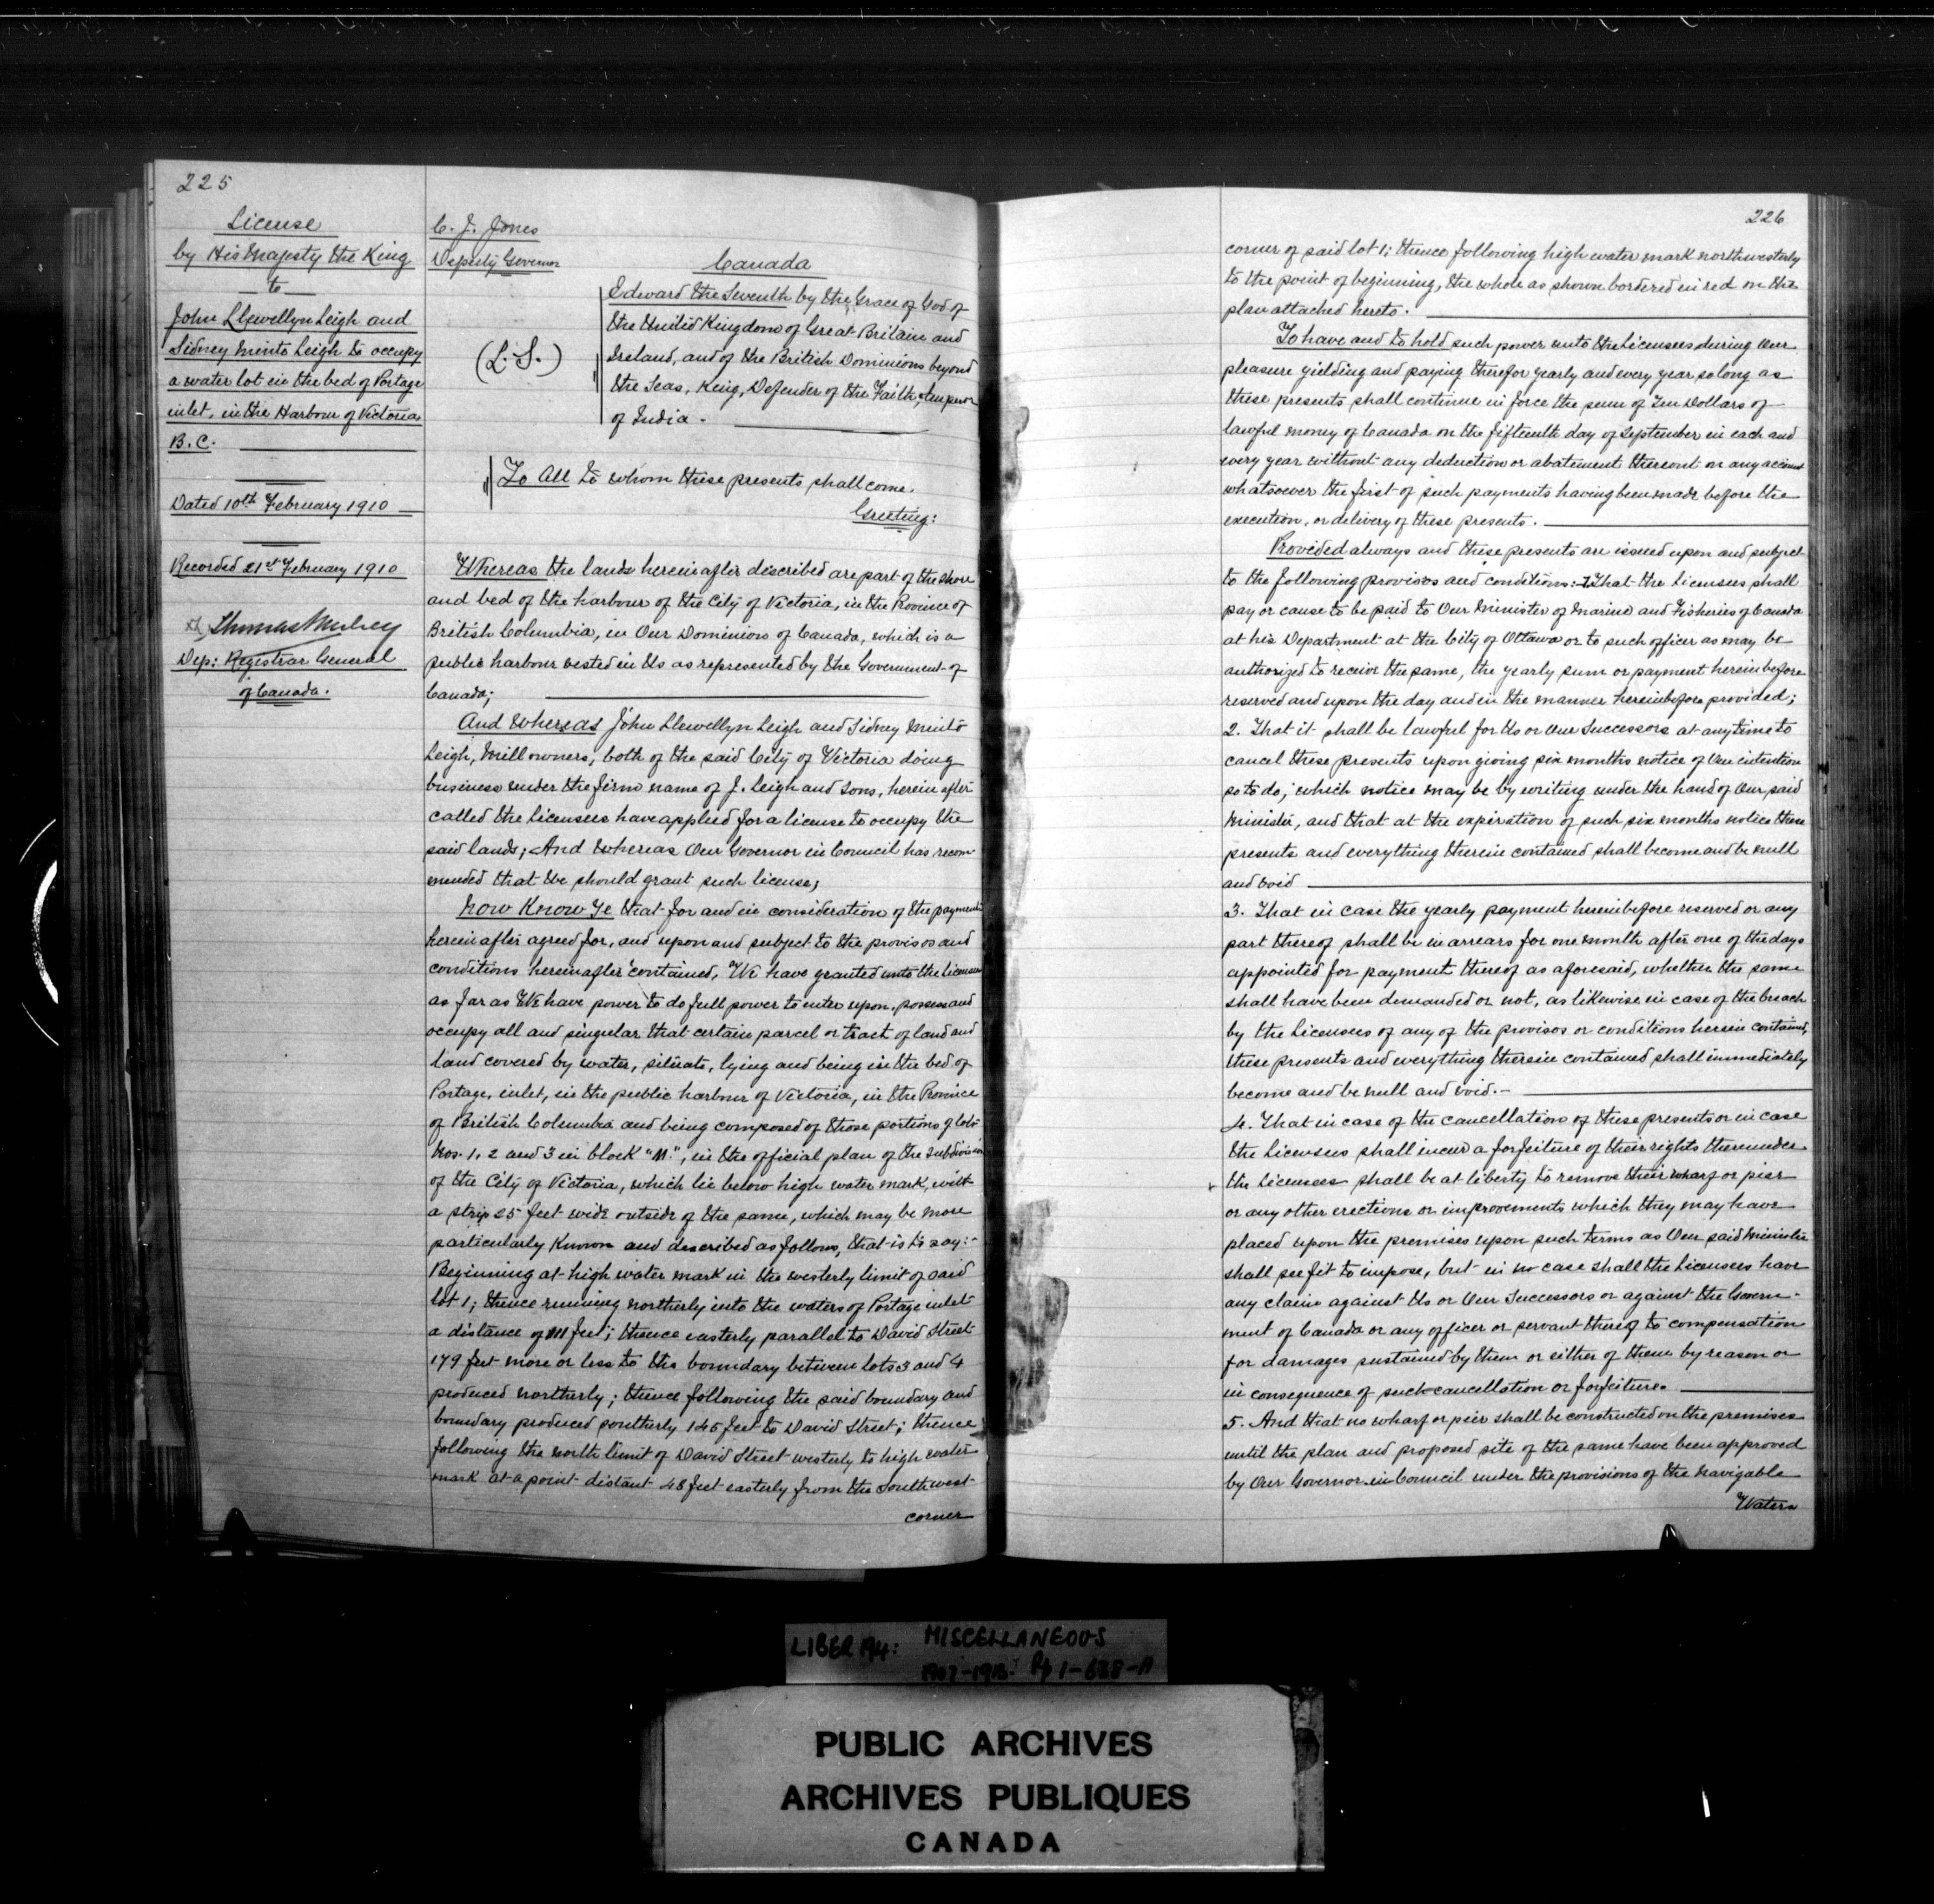 225
License
by His Majesty the King
to
John Llewellyn Leigh and
Sidney Minto Leigh to occupy
a water lot in the bed of Portage
inlet, in the Harbour of Victoria
B.C.
Dated 10th February 1910
Recorded 21st February 1910
Thomas Mulvey
Dep: Registrar General
of Canada.
C. J. Jones
Deputy Governor
Canada
(L.S.)
Edward the Seventh by the Grace of God of
the United Kingdom of Great Britain and
Ireland, and of the British Dominions beyond
the Seas, King, Defender of the Faith, Emperor
of India.
To All to whom these presents shall come.
Greeting:
Whereas the lands hereinafter described are part of the shore
and bed of the harbour of the City of Victoria, in the Province of
British Columbia, in Our Dominion of Canada, which is a
public harbour vested in Us as represented by the Government of
Canada;
And Whereas John Llewellyn Leigh and Sidney Minto
Leigh, Mill owners, both of the said City of Victoria doing
business under the firm name of J. Leigh and Sons, herein after
called the Licensees have applied for a license to occupy the
said lands; And Whereas Our Governor in Council has recom-
mended that We should grant such license;
Now Know Ye that for and in consideration of the payments
herein after agreed for, and upon and subject to the provisos and
conditions hereinafter contained, We have granted unto the Licensees
as far as We have power to do full power to enter upon, possess and
occupy all and singular that certain parcel or tract of land and
land covered by water, situate, lying and being in the bed of
Portage, inlet, in the public harbour of Victoria, in the Province
of British Columbia and being composed of those portions of lots
Nos. 1, 2 and 3 in block "M.", in the official plan of the subdivision
of the City of Victoria, which lie below high water mark, with
a strip 25 feet wide outside of the same, which may be more
particularly known and described as follows, that is to say:-
Beginning at high water mark in the westerly limit of said
lot 1; thence running northerly into the waters of Portage inlet
a distance of 111 feet; thence easterly parallel to David Street
179 feet more or less to the boundary between lots 3 and 4
produced northerly; thence following the said boundary and
boundary produced southerly 145 feet to David Street; thence
following the north limit of David Street westerly to high water
mark at a point distant 48 feet easterly from the southwest
corner
226
corner of said lot 1; thence following high water mark northwesterly
to the point of beginning, the whole as shown bordered in red on the
plan attached hereto.
To have and to hold such power unto the Licensees during Our
pleasure yielding and paying therefor yearly and every year so long as
these presents shall continue in force the sum of Ten Dollars of
lawful money of Canada on the fifteenth day of September in each and
every year without any deduction or abatement thereout on any account
whatsoever the first of such payments having been made before the
execution, or delivery of these presents.
Provided always and these presents are issued upon and subject
to the following provisos and conditions: 1 That the Licensees shall
pay or cause to be paid to Our Minister of Marine and Fisheries of Canada
at his Department at the City of Ottawa or to such officer as may be
authorized to receive the same, the yearly sum or payment hereinbefore
reserved and upon the day and in the manner hereinbefore provided;
2. That it shall be lawful for Us or Our Successors at any time to
cancel these presents upon giving six months notice of Our intention
so to do, which notice may be by writing under the hand of Our said
Minister, and that at the expiration of such six months notice these
presents and everything therein contained shall become and be null
and void
3. That in case the yearly payment hereinbefore reserved or any
part thereof shall be in arrears for one month after one of the days
appointed for payment thereof as aforesaid, whether the same
shall have been demanded or not, as likewise in case of the breach
by the Licensees of any of the provisos or conditions herein contained,
these presents and everything therein contained shall immediately
become and be null and void.-
4. That in case of the cancellation of these presents or in case
the Licensees shall incur a forfeiture of their rights thereunder
the Licensees shall be at liberty to remove their wharf or pier
or any other erections or improvements which they may have
placed upon the premises upon such terms as Our said Minister
shall see fit to impose, but in no case shall the Licensees have
any claim against Us or Our Successors or against the Govern-
ment of Canada or any officer or servant thereof to compensation
for damages sustained by them or either of them by reason or
in consequence of such cancellation or forfeiture.
5. And that no wharf or pier shall be constructed on the premises
until the plan and proposed site of the same have been approved
by Our Governor in Council under the provisions of the Navigable
Waters
LIBER 194: MISCELLANEOUS
1907-1913. Pp 1-638-A
PUBLIC ARCHIVES
ARCHIVES PUBLIQUES
CANADA